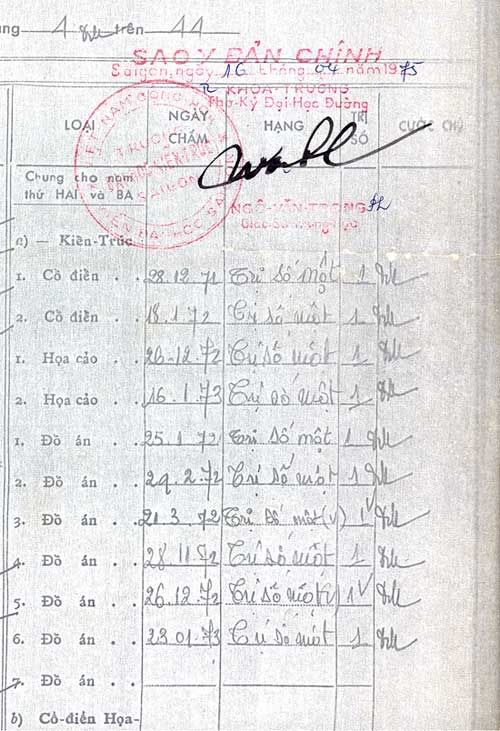 ung 4 trên 44
SAO Y BẢN CHÍNH
Saigon, ngày 16 tháng 04 năm 1975
KHOA-TRƯỞNG
Thơ-Ký Đại-Học Đường
LOẠI NGÀY CHẤM HẠNG TRỊ SỐ CƯỚC CHÚ
Chung cho năm
thứ HAI và BA
NGÔ-VĂN-TRỌNG
a) — Kiến-Trúc
1. Cổ điển . . 28.12.71 Trị số một 1
2. Cổ điển . . 18.1.72 Trị số một 1
1. Họa cảo . . 26-12.72 Trị số một 1
2. Họa cảo . . 16.1.73 Trị số một 1
1. Đồ án . . 25.1.72 Trị số một 1
2. Đồ án . . 29.2.72 Trị số một 1
3. Đồ án . . 21.3.72 Trị số một (v) 1v
4. Đồ án . . 28.11.72 Trị số một 1
5. Đồ án . . 26.12.72 Trị số một (v) 1v
6. Đồ án . . 23.01.73 Trị số một 1
7. Đồ án . .
b) Cổ-điển Họa-